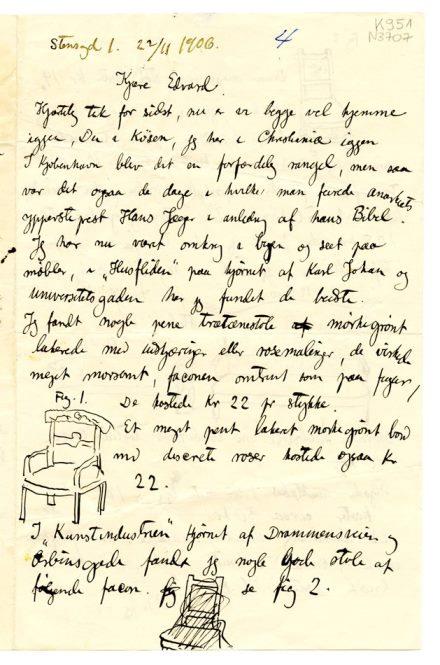 K951
N3707
Stensgd 1. 22/11 1906.
4
Kjære Edvard.
Hjertelig tak for sidst, nu er vi begge vel hjemme
igjen, Du i Kösen, jeg her i Christiania igjen
I Kjøbenhavn blev det en forfærdelig rangel, men saa
var det ogsaa de dage i hvilke man feirede anarkiets
ypperstepræst Hans Jæger i anledng af hans Bibel.
Jeg har nu været omkrig i byen og seet paa
møbler, i „Husfliden" paa hjørnet af Karl Johan og
Universitetsgaden har jeg fundet de bedste.
Jeg fandt nogle pene trætænestole mørkegrønt
lakerede med udskjæringer eller rosemalinger, de virkede
meget morsomt, faconen omtrent som paa figuren,
Fig. 1.
De kostede Kr 22 pr stykke.
Et meget pent lakert mørkegrønt bord
med discrete roser kostede ogsaa Kr
22.
I „Kunstindustrien" Hjørnet af Drammensveien og
fandt jeg nogle gode stole af
følgende facon. se fig 2.